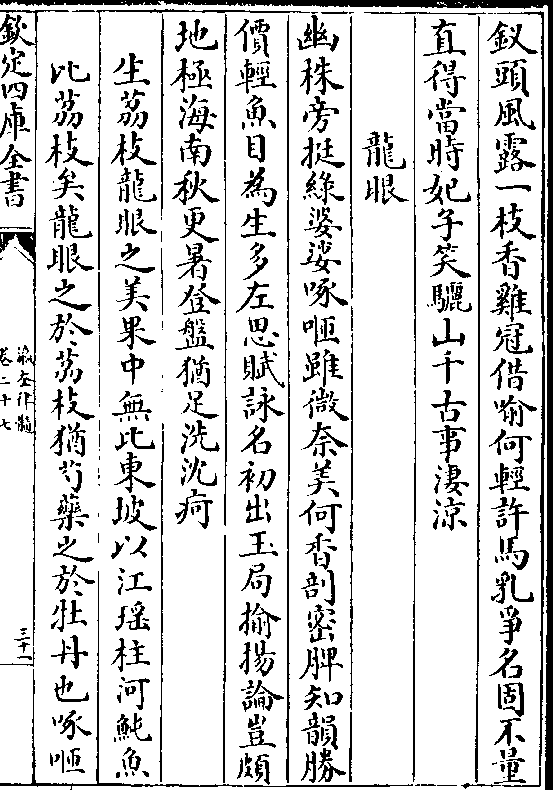 釵頭風露一枝香雞冠借喻何輕許馬乳爭名固不量
直得當時妃子笑驪山千古事淒涼
龍眼
幽株旁挺綠婆娑啄咂雖微奈美何香剖密脾知韻勝
價輕魚目為生多左思賦詠名初出玉局揄揚論豈頗
地極海南秋更暑登盤猶足洗沈疴
生荔枝龍眼之美果中無比東坡以江瑤柱河魨魚
比荔枝矣龍眼之於荔枝猶芍藥之於牡丹也啄咂
欽定四庫全書
瀛奎律髓
卷二十七
三十一